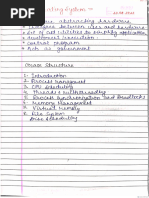 Operating System -
abstracting hardware
between user and hardware
Set of all utilities to simplify application
environment
Control program
Act as government
Course Structure
1. Introduction
2. Process management
3. CPU scheduling
4. Threads & Multithreading
5. Process synchronization and Deadlocks
6. Memory Management
7. Virtual memory
8. File System
Disc scheduling